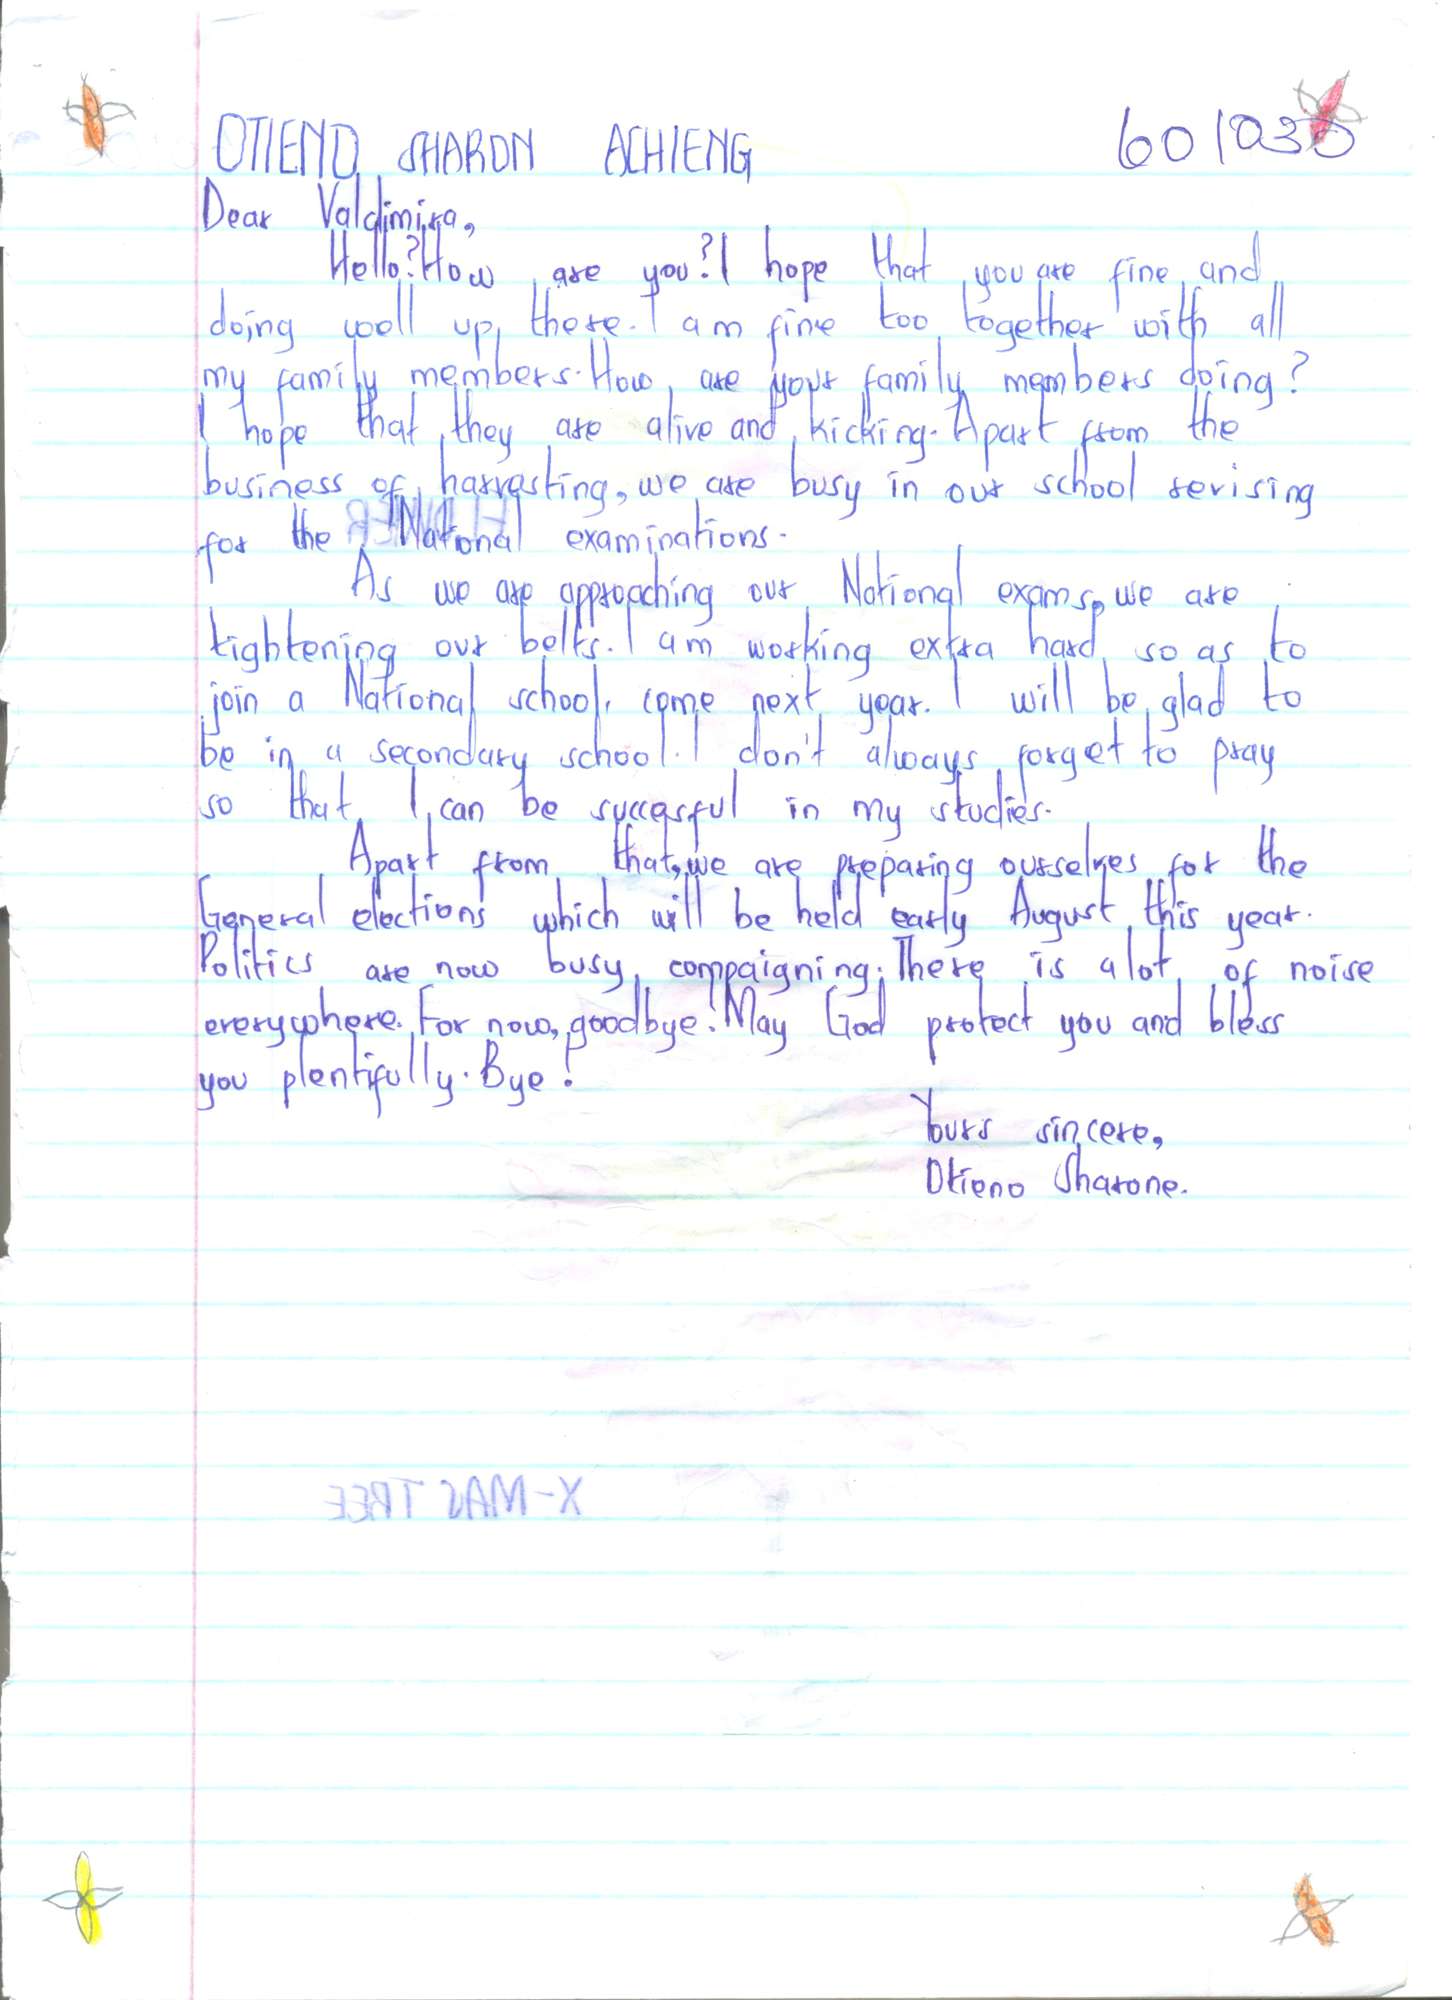 OTIENO SHARON ACHIENG 601030
Dear Valdimira,
Hello? How are you? I hope that you are fine and
doing well up there. I am fine too together with all
my family members. How are your family members doing?
I hope that they are alive and kicking. Apart from the
business of harvesting, we are busy in our school revising
for the National examinations.
As we are approaching our National exams, we are
tightening our belts. I am working extra hard so as to
join a National school, come next year. I will be glad to
be in a secondary school. I don't always forget to pray
so that I can be successful in my studies.
Apart from that, we are preparing ourselves for the
General elections which will be held early August this year.
Politics are now busy compaigning. There is alot of noise
everywhere. For now, goodbye! May God protect you and bless
you plentifully. Bye!
Yours sincere,
Otieno Sharone.
X-MAS TREE